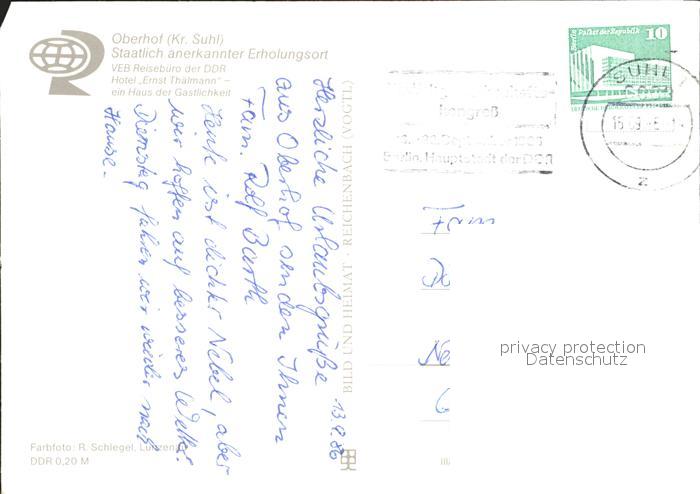 Oberhof (Kr. Suhl)
Staatlich anerkannter Erholungsort
VEB Reisebüro der DDR
Hotel „Ernst Thälmann" –
ein Haus der Gastlichkeit
Herzliche Urlaubsgrüße
aus Oberhof senden Ihnen
Fam. Rolf Barth
Heute ist dichter Nebel, aber
wir hoffen auf besseres Wetter.
Dienstag fahren wir wieder nach
Hause.
13.9.86
BILD UND HEIMAT · REICHENBACH (VOGTL)
Farbfoto: R. Schlegel,
DDR 0,20 M
kongreß
Berlin, Hauptstadt der DDR
Berlin, Palast der Republik
10
SUHL 1
2
privacy protection
Datenschutz